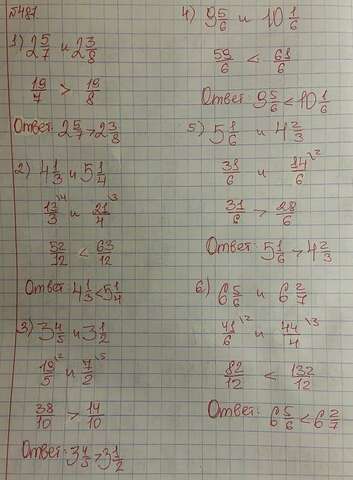 №481.
1) 2 5/7 и 2 3/8
19/7 > 19/8
Ответ: 2 5/7 > 2 3/8
2) 4 1/3 и 5 1/4
13/3 \4 и 21/4 \3
52/12 < 63/12
Ответ: 4 1/3 < 5 1/4
3) 3 4/5 и 3 1/2
19/5 \2 и 7/2 \5
38/10 > 14/10
Ответ: 3 4/5 > 3 1/2
4) 9 5/6 и 10 1/6
59/6 < 61/6
Ответ: 9 5/6 < 10 1/6
5) 5 1/6 и 4 2/3
31/6 и 14/6 \2
31/6 > 28/6
Ответ: 5 1/6 > 4 2/3
6) 6 5/6 и 6 2/7
41/6 \2 и 44/4 \3
82/12 < 132/12
Ответ: 6 5/6 < 6 2/7